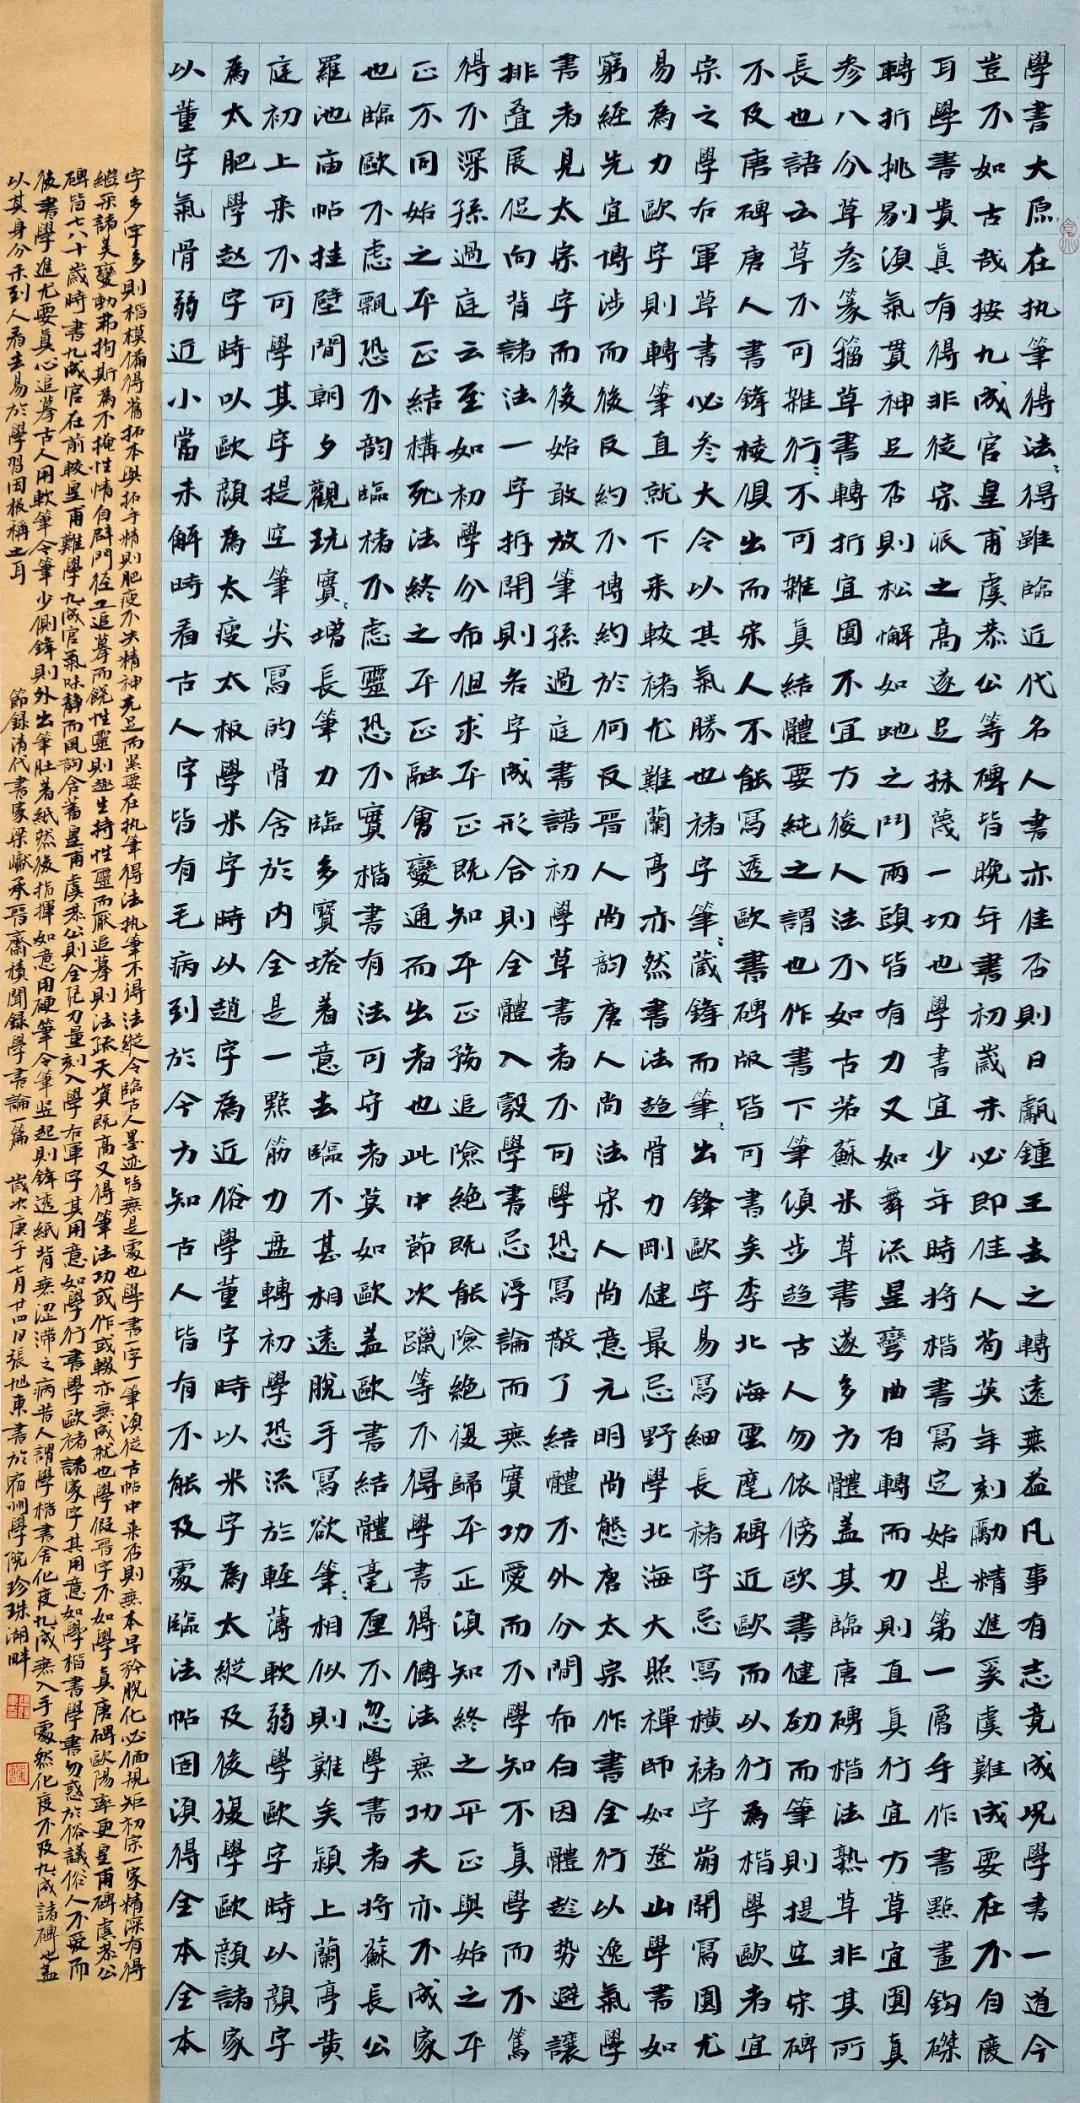 學書大原在执筆得法得雖臨近代名人書亦佳否則日鍾王去之轉遠無益凡事有志竟成况學書一道今
豈不如古哉按九成宮皇甫虞恭公等碑皆晚年書初歲未必即佳人苟英年刻勵精進奚虞難成要在不自廢
耳學書貴真有得非徒宗派之高遂足抹蔑一切也學書宜少年時將楷書寫定始是第一層手作書點畫鈎磔
轉折挑剔須氣貫神足否則松懈如虵之鬥兩頭皆有力又如舞流星彎曲百轉而力則直真行宜方草宜圓真
参八分草参篆籀草書轉折宜圓不宜方後人法不如古若蘇米草書遂多方體盖其臨唐碑楷法熟草非其所
長也語云草不可雜行不可雜真結體要純之謂也作書下筆傾步趋古人勿依傍歐書健劲而筆則提空宋碑
不及唐碑唐人書鋒棱俱出而宋人不能寫透歐書碑版皆可書矣李北海雲麾碑近歐而以行為楷學歐者宜
宗之學右軍草書必叅大令以其氣勝也褚字筆藏鋒而筆出鋒歐字易寫細長褚字忌寫横褚字崩開寫圓尤
易為力歐字則轉筆直就下来較褚尤難蘭亭亦然書法趋骨力剛健最忌野學北海大照禪師如登山學書如
窮經先宜博涉而後反約不博約於何反晋人尚韵唐人尚法宋人尚意元明尚態唐太宗作書全行以逸氣學
書者見太宗字而後始敢放筆孫過庭書譜初學草書者不可學恐寫散了結體不外分間布白因體趁势避讓
排叠展促向背諸法一字拆開則各字成形合則全體入彀學書忌浮論而無實功愛而不學知不真學而不篤
得不深孫過庭云至如初學分布但求平正既知平正務追險絕既能險絕復歸平正須知終之平正與始之平
正不同始之平正結構死法終之平正融會變通而出者也此中節次躐等不得學書得傳法無功夫亦不成家
也臨歐不虑飄恐不韵臨褚不虑靈恐不實楷書有法可守者莫如歐盖歐書結體毫厘不忽學書者將蘇長公
羅池廟帖挂壁間朝夕觀玩實增長筆力臨多寳塔着意去臨不甚相遠脱手寫欲筆相似則難矣潁上蘭亭黄
庭初上来不可學其字提空筆尖寫的骨含於內全是一點筋力盘轉初學恐流於輕薄軟弱學歐字時以顔字
為太肥學赵字時以歐顔為太瘦太板學米字時以趙字為近俗學董字時以米字為太縱及後復學歐顔諸家
以董字氣骨弱近小當未解時看古人字皆有毛病到於今方知古人皆有不能及處臨法帖固須得全本全本
字多字多則楷模備得舊拓本與拓手精則肥瘦不失精神充足而㝡要在执筆得法执筆不得法縱令臨古人墨迹皆無是處也學書一字一筆須從古帖中来否則無本早矜脱化必偭規矩初宗一家精深有得
继采諸美變動弗拘斯為不掩性情自辟門徑工追摹而饒性靈則趣生持性靈而厭追摹則法疏天資既高又得筆法功或作或輟亦無成就也學假晋字不如學真唐碑歐陽率更皇甫碑虞恭公
碑皆七八十歲時書九成宫在前較皇甫難學九成宫氣味静而風韵含蓄皇甫虞恭公則全從力量刻入學右軍字其用意如學行書學歐褚諸家字其用意如學楷書學書勿惑於俗議俗人不爱而
後書學進尤要真心追摹古人用軟筆令筆少側鋒則外出筆肚着紙然後指揮如意用硬筆令筆竖起則鋒透紙背無涩滯之病昔人謂學楷書舍化度九成無入手處然化度不及九成諸碑也盖
以其身分未到人看去易於學習因极稱之耳
節錄清代書家梁巘承晋齋積聞録學書論一篇 歲次庚子七月廿四日張旭東書於宿州學院珍珠湖畔